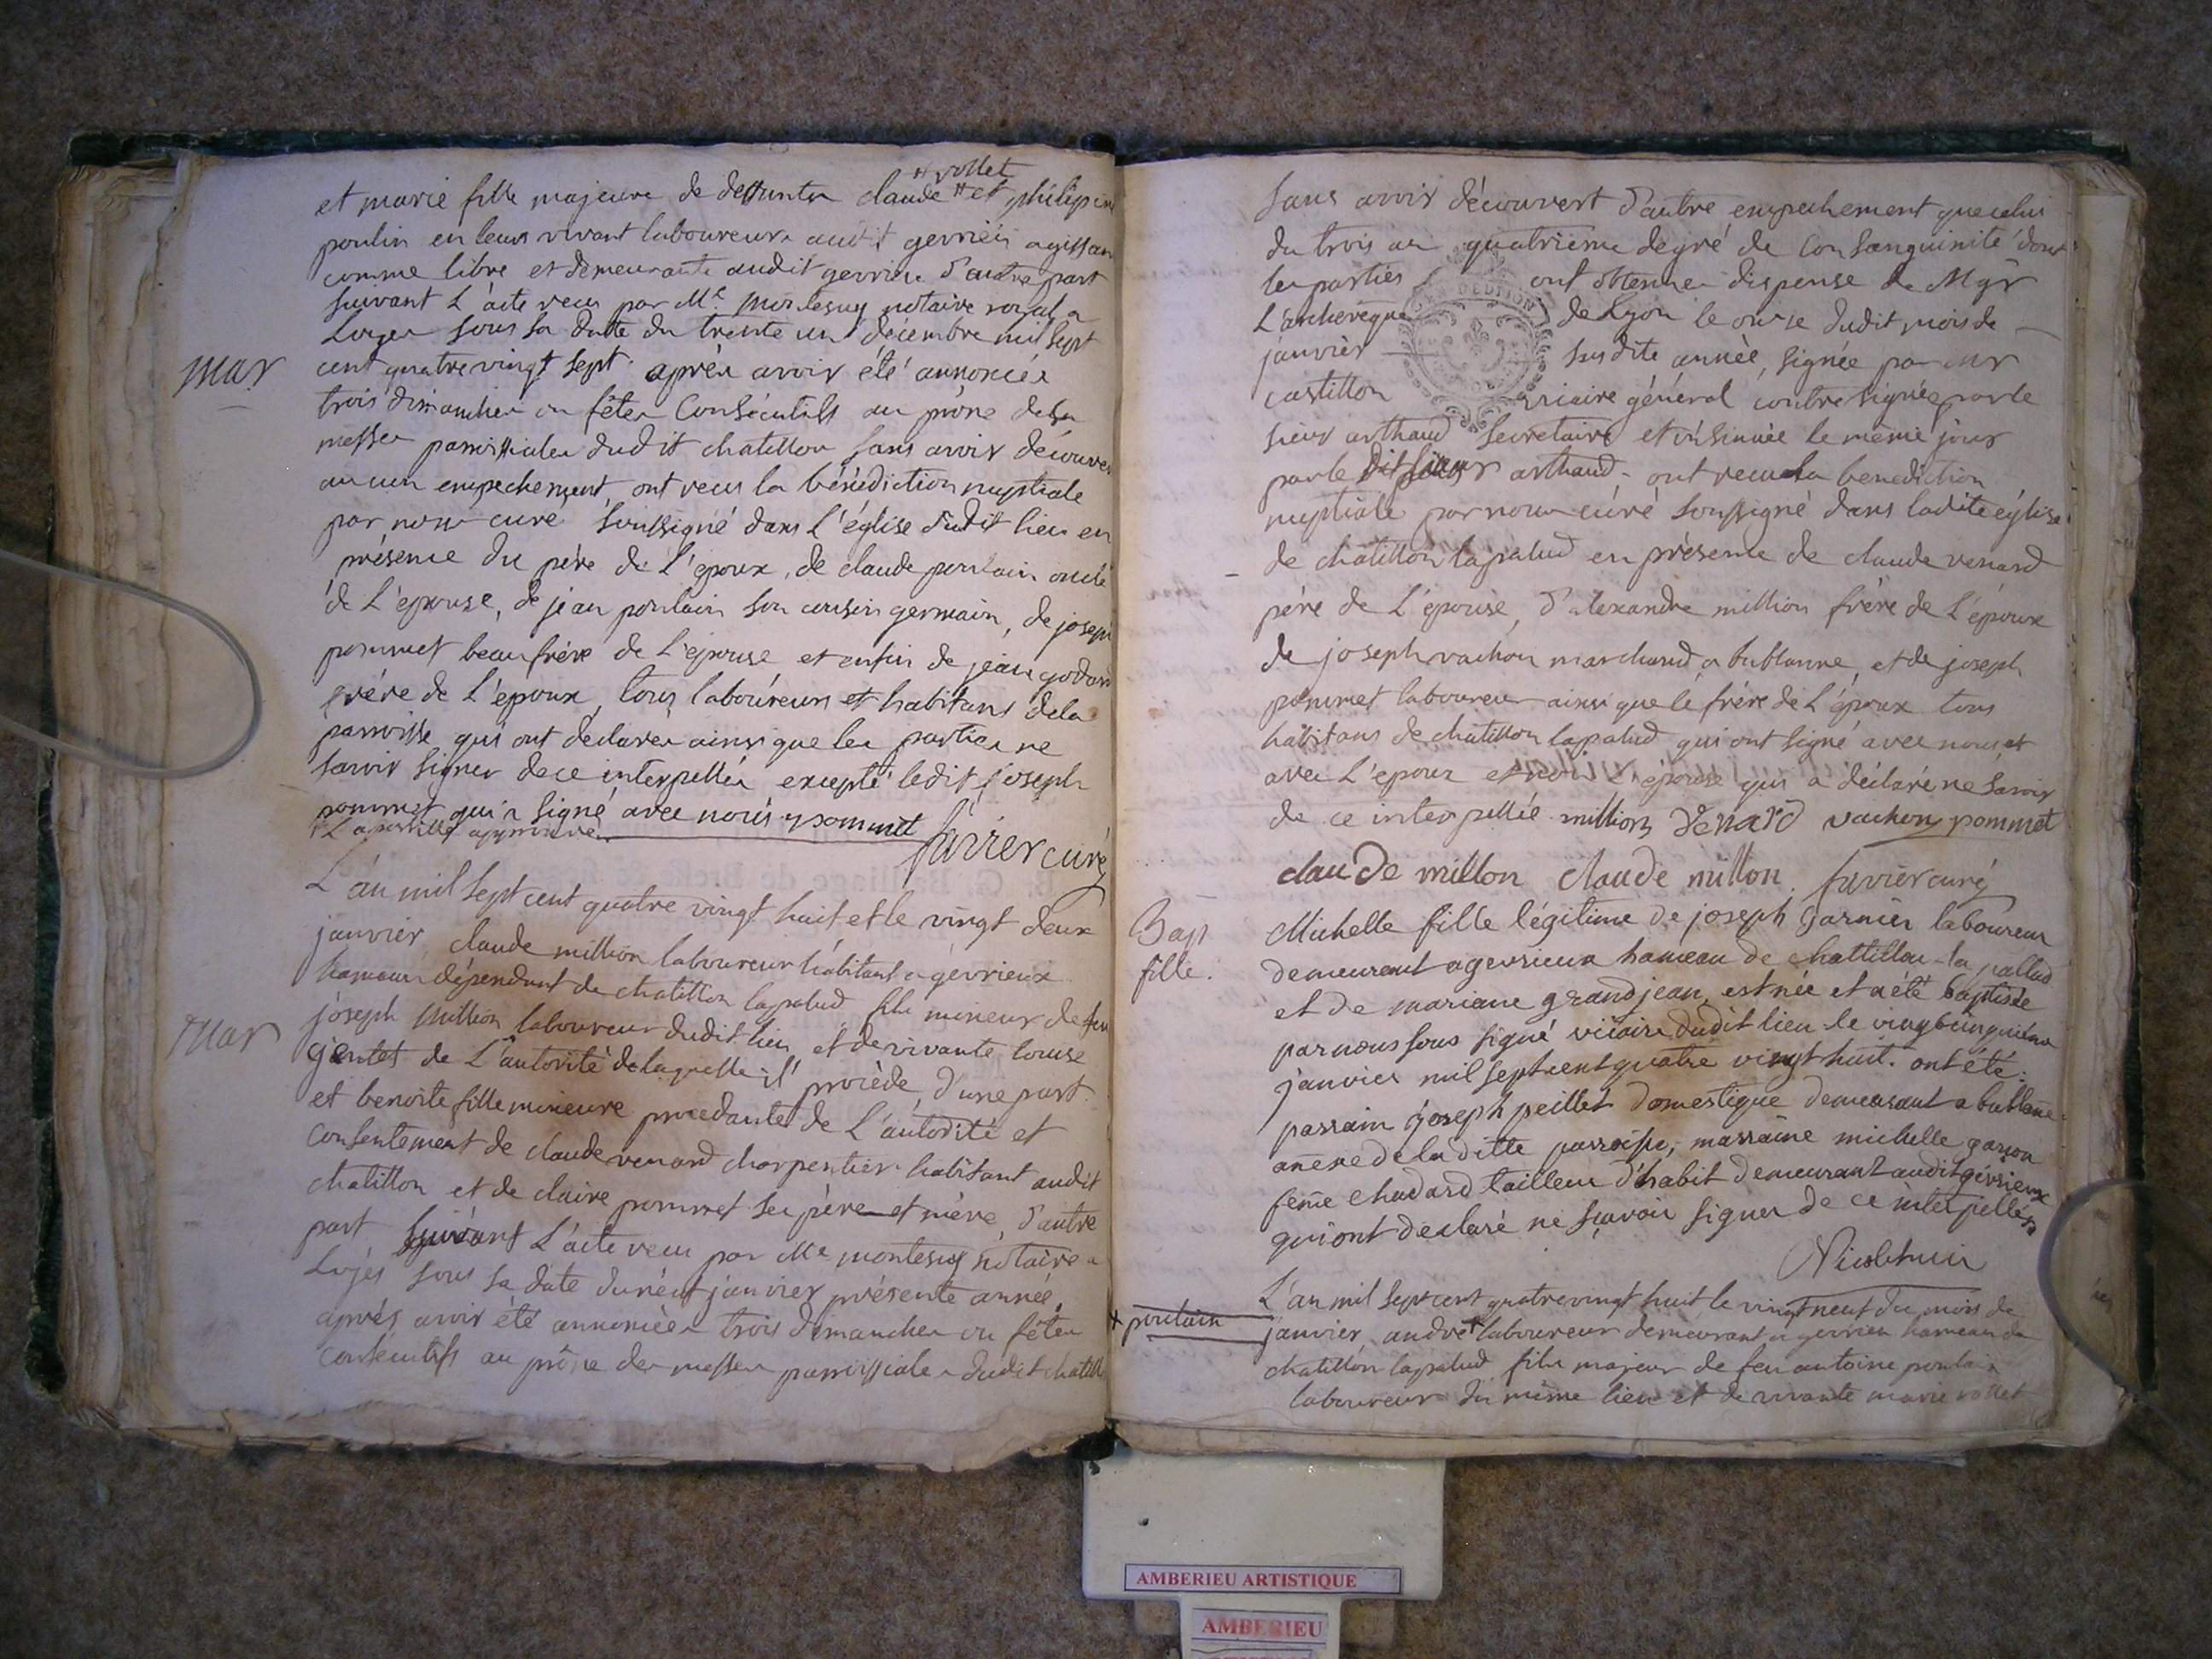 # vollet
et marie fille majeure de deffunts claude # et philipine
poulin en leurs vivant laboureurs audit gevrieu agissan
comme libre et demeurante audit gevrieu d'autre part
suivant L'acte recu par Me montesuy notaire royal a
Loyes sous sa datte du trente un décembre mil sept
mar
cent quatre vingt sept après avoir été annoncés
trois dimanches ou fêtes Consécutifs au prône de la
messes parroissiales dudit chatillon sans avoir découver
aucun empechement, ont recu la bénédiction nuptiale
par nous curé soussigné dans L'église dudit lieu en
présence du père de L'epoux, de claude poulain oncle
de L'epouse, de jean poulain son cousin germain, de joseph
pommet beaufrère de L'epouse et enfin de jean godard
frère de L'epoux, tous laboureurs et habitans dela
parroisse qui ont declarer ainsi que les parties ne
savoir signer de ce interpellés excepté ledit joseph
pommet qui a signé avec nous. pommet
# L'apostille approuvée
favier curé
L'an mil sept cent quatre vingt huit et le vingt deux
janvier claude million laboureur habitant a gévrieux
hameau dépendant de chatillon lapalud fils mineur de feu
mar
joseph million laboureur dudit lieu et de vivante louise
gentet de L'autorité delaquelle il procède, d'une part
et benoite fille mineure procedante de L'autorité et
consentement de claude venard charpentier habitant audit
chatillon et de claire pommet ses père et mère, d'autre
part suivant L'acte recu par Me montesuy notaire a
Loyes sous sa date du neuf janvier présente année
après avoir été annoncées trois dimanches ou fêtes
consécutifs au prône des messes parroissiales dudit chatill
sans avoir découvert d'autre empechement que celui
du trois au quatrième degré de Consanguinité dont
les parties ont obtenues dispense de Mgr
L'archevêque de Lyon le onze dudit mois de
janvier susdite année, signée par mr
castillon vicaire général contresignée par le
sieur arthaud secretaire et insinuée le même jour
par le dit sieur arthaud, ont recu la benediction
nuptiale par nous curé soussigné dans ladite église
de chatillon lapalud en présence de claude venard
père de L'épouse, d'alexandre million frère de L'époux
de joseph vachon marchand a bublanne, et de joseph
pommet laboureur ainsi que le frère de L'époux tous
habitans de chatillon lapalud qui ont signé avec nous et
avec L'epoux et non L'épouse qui a déclaré ne savoir
de ce interpellée. million Venard vachon pommet
claude millon claude millon. favier curé
Bap
fille.
Michelle fille légitime de joseph Garnier laboureur
demeurant a gevrieux hameau de chatillon-la pallud
et de mariane grandjean, est née et a été baptisée
par nous sous signé vicaire dudit lieu le vingt cinquieme
janvier mil sept cent quatre vingt huit. ont été:
parrain joseph peillet domestique demeurant a bublane
annexe de la ditte parroisse, marraine michelle garçon
feme chudard tailleur d'habit demeurant audit gévrieux
qui ont déclaré ne sçavoir signer de ce interpellés
L'an mil sept cent quatre vingt huit le vingt neuf du mois de
x poulain
janvier andré x laboureur demeurant a gevrieu hameau de
chatillon lapalud fils majeur de feu antoine poulain
laboureur du même lieu et de vivante marie vollet
AMBERIEU ARTISTIQUE
AMBERIEU